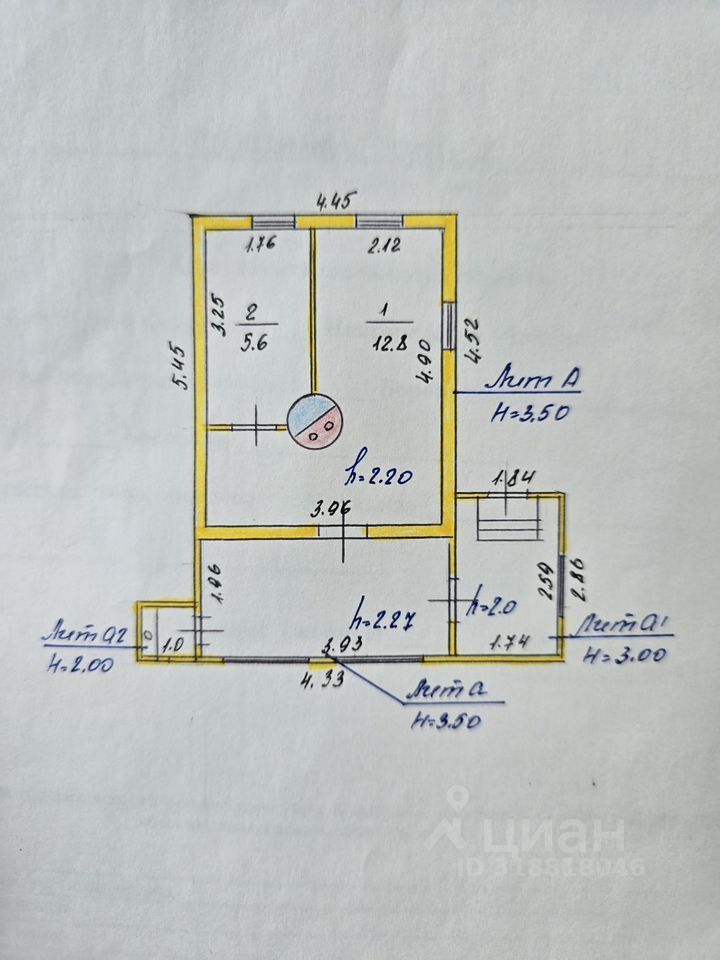 4.45
1.76
2.12
3.25
2
5.6
1
12.8
5.45
4.90
4.52
Лит А
H=3.50
h=2.20
1.84
3.96
1.96
h=2.27
h=2.0
2.59
2.86
Лит а2
H=2.00
0
1.0
3.93
4.33
1.74
Лит а1
H=3.00
Лит а
H=3.50
циан
ID 318818046